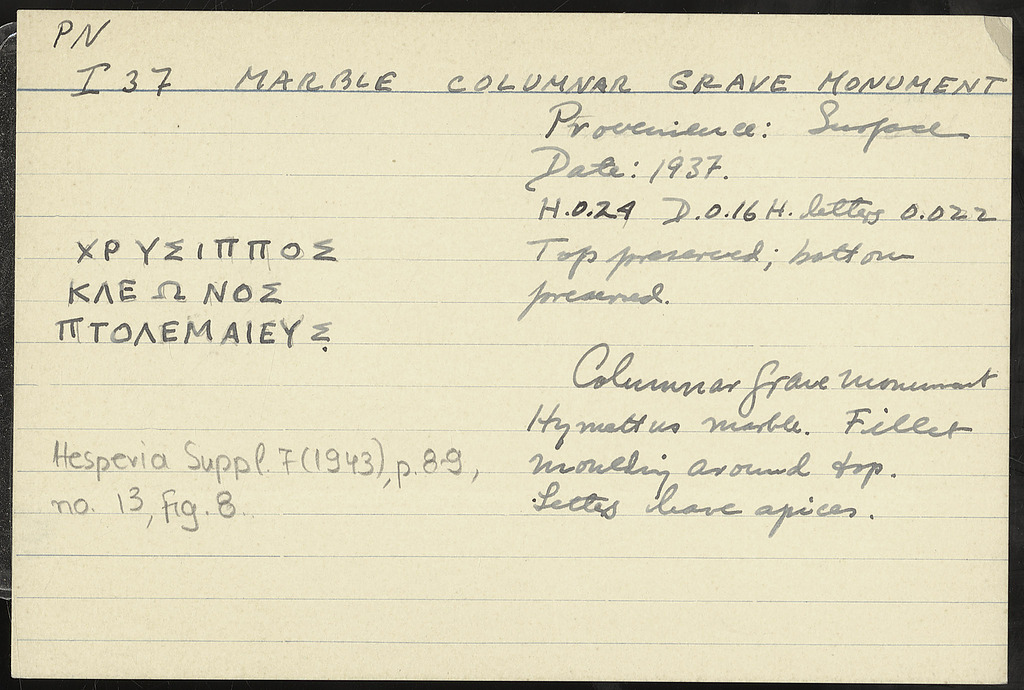 PN
I 37 MARBLE COLUMNAR GRAVE MONUMENT
Provenience: Surface
Date: 1937.
H.0.24 D.0.16 H. letters 0.022
Top preserved; bottom
preserved.
ΧΡΥΣΙΠΠΟΣ
ΚΛΕΩΝΟΣ
ΠΤΟΛΕΜΑΙΕΥΣ̣
Columnar grave monument
Hymettus marble. Fillet
moulding around top.
Letters have apices.
Hesperia Suppl. 7 (1943), p. 8-9,
no. 13, fig. 8.